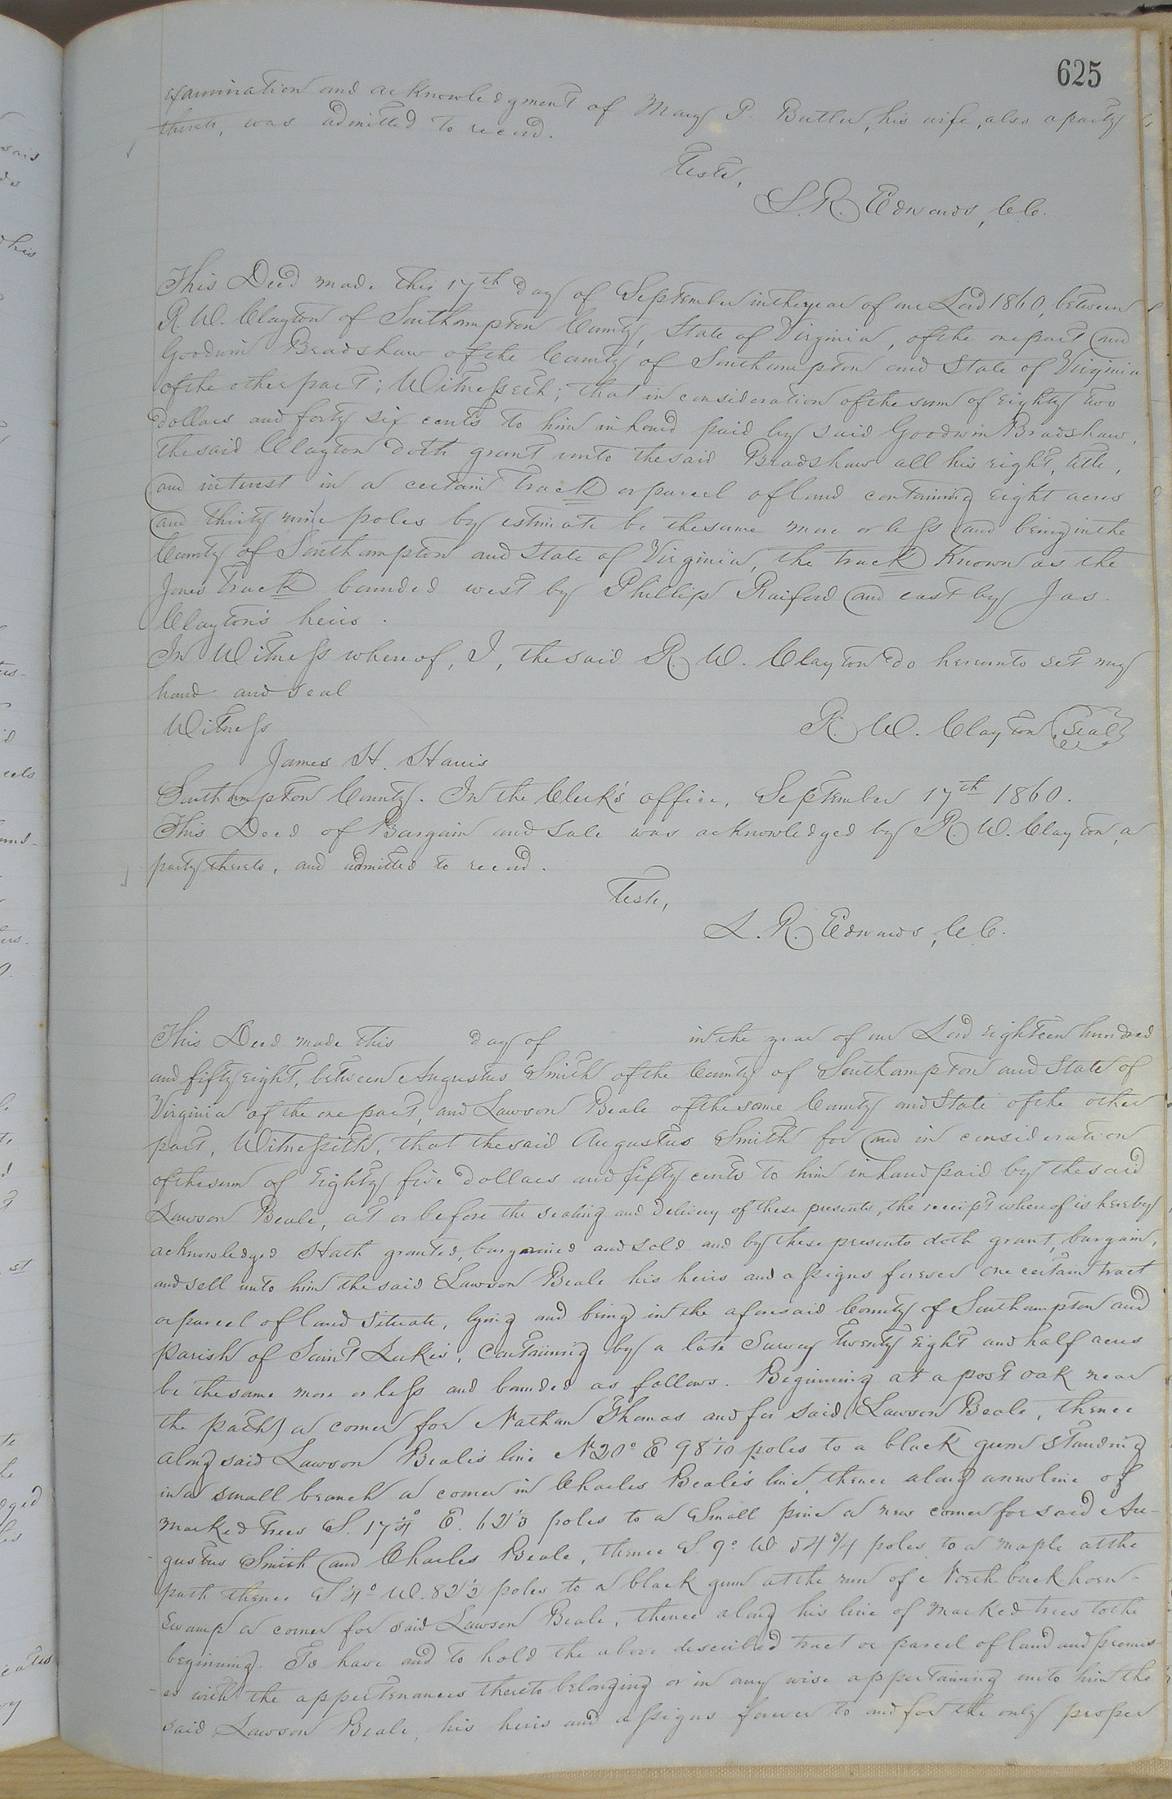 625
examination and acknowledgment of Mary P. Butler, his wife, also a party
thereto, was admitted to record.
Teste,
L. R. Edwards, C.C.
This Deed made this 17th day of September in the year of our Lord 1860, between
R. W. Clayton of Southampton County, State of Virginia, of the one part and
Goodwin Bradshaw of the County of Southampton and State of Virginia
of the other part; Witnesseth; that in consideration of the sum of Eighty two
dollars and forty six cents to him in hand paid by said Goodwin Bradshaw,
the said Clayton doth grant unto the said Bradshaw all his right, title,
and interest in a certain track or parcel of land containing eight acres
and thirty nine poles by estimate be the same more or less and being in the
County of Southampton and State of Virginia, the track Known as the
Jones Track bounded west by Phillip Raiford and east by Jas.
Clayton's heirs.
In Witness whereof, I, the said R. W. Clayton do hereunto set my
hand and seal
Witness R. W. Clayton Seal
James H. Harris
Southampton County. In the Clerk's office, September 17th 1860.
This Deed of Bargain and Sale was acknowledged by R. W. Clayton, a
party thereto, and admitted to record.
Teste,
L. R. Edwards, C.C.
This Deed made this day of in the year of our Lord eighteen hundred
and fifty eight, between Augustus Smith of the County of Southampton and State of
Virginia of the one part, and Lawson Beale of the same County and State of the other
part, Witnesseth, that the said Augustus Smith for and in consideration
of the sum of Eighty five dollars and fifty cents to him in hand paid by the said
Lawson Beale, at or before the sealing and delivery of these presents, the receipt whereof is hereby
acknowledged Hath granted, bargained and sold and by these presents doth grant, bargain,
and sell unto him the said Lawson Beale his heirs and assigns forever one certain tract
or parcel of land situate, lying and being in the aforesaid County of Southampton and
parish of Saint Luke's, containing by a late Survey twenty eight and half acres
be the same more or less and bounded as follows. Beginning at a post oak near
the path a corner for Nathan Thomas and for said Lawson Beale, thence
along said Lawson Beale's line N 20° E 98 1/10 poles to a black gum standing
in a small branch a corner in Charles Beale's line, thence along a new line of
marked trees S. 17 1/4° E. 62 1/3 poles to a Small pine a new corner for said Au-
gustus Smith and Charles Beale, thence S. 9° W 54 3/4 poles to a maple at the
path thence S 4° W. 82 1/2 poles to a black gum at the run of North back horn-
Swamp a corner for said Lawson Beale, thence along his line of marked trees to the
beginning. To have and to hold the above described tract or parcel of land and premis-
es with the appertenances thereto belonging or in any wise appertaining unto him the
said Lawson Beale, his heirs and assigns forever to and for the only proper